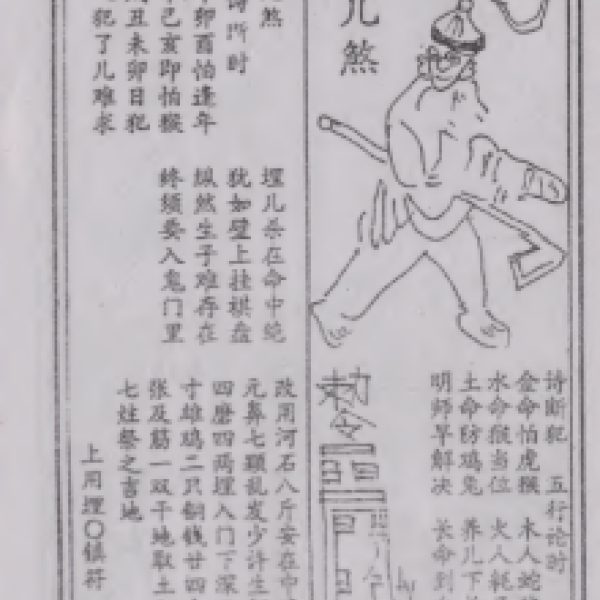 儿煞
诗断犯 五行论时
金命怕虎猴 木人蛇
水命猴当位 火人
土命防鸡兔 养儿下
明师早解决 长命到
敕令
煞
诗所时
卯酉怕逢年
己亥即怕猴
丑未卯日犯
犯了儿难求
埋儿杀在命中绝
犹如壁上挂棋盘
纵然生子难存在
终须要入鬼门里
改用河石八斤安在中
元鼻七颗乱发少许生
四唐四两埋入门下深
寸雄鸡二只铜钱廿四
张及筋一双干地取土
七炷祭之吉地
上用埋〇镇符